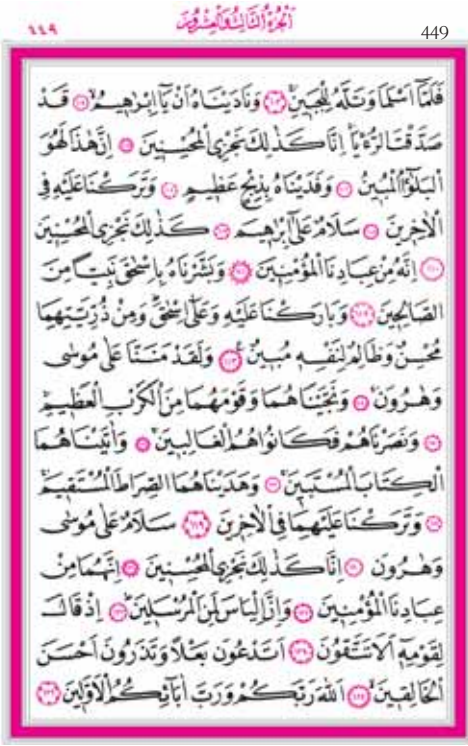 ٤٤٩
اَلْجُزْءُ الثَّالِثُ وَالْعِشْرُونَ
449
فَلَمَّٓا اَسْلَمَا وَتَلَّهُ لِلْجَبٖينِۚ ﴿١٠٣﴾ وَنَادَيْنَاهُ اَنْ يَٓا اِبْرٰهٖيمُۙ ﴿١٠٤﴾ قَدْ
صَدَّقْتَ الرُّءْيَاۚ اِنَّا كَذٰلِكَ نَجْزِي الْمُحْسِنٖينَ ﴿١٠٥﴾ اِنَّ هٰذَا لَهُوَ
الْبَلٰٓؤُ۬ا الْمُبٖينُ ﴿١٠٦﴾ وَفَدَيْنَاهُ بِذِبْحٍ عَظٖيمٍ ﴿١٠٧﴾ وَتَرَكْنَا عَلَيْهِ فِي
الْاٰخِرٖينَۖ ﴿١٠٨﴾ سَلَامٌ عَلٰٓى اِبْرٰهٖيمَ ﴿١٠٩﴾ كَذٰلِكَ نَجْزِي الْمُحْسِنٖينَ
﴿١١٠﴾ اِنَّهُ مِنْ عِبَادِنَا الْمُؤْمِنٖينَ ﴿١١١﴾ وَبَشَّرْنَاهُ بِاِسْحٰقَ نَبِيًّا مِنَ
الصَّالِحٖينَ ﴿١١٢﴾ وَبَارَكْنَا عَلَيْهِ وَعَلٰٓى اِسْحٰقَؕ وَمِنْ ذُرِّيَّتِهِمَا
مُحْسِنٌ وَظَالِمٌ لِنَفْسِهٖ مُبٖينٌ۟ ﴿١١٣﴾ وَلَقَدْ مَنَنَّا عَلٰى مُوسٰى
وَهٰرُونَۚ ﴿١١٤﴾ وَنَجَّيْنَاهُمَا وَقَوْمَهُمَا مِنَ الْكَرْبِ الْعَظٖيمِۚ
﴿١١٥﴾ وَنَصَرْنَاهُمْ فَكَانُوا هُمُ الْغَالِبٖينَۚ ﴿١١٦﴾ وَاٰتَيْنَاهُمَا
الْكِتَابَ الْمُسْتَبٖينَۚ ﴿١١٧﴾ وَهَدَيْنَاهُمَا الصِّرَاطَ الْمُسْتَقٖيمَۚ
﴿١١٨﴾ وَتَرَكْنَا عَلَيْهِمَا فِي الْاٰخِرٖينَۙ ﴿١١٩﴾ سَلَامٌ عَلٰى مُوسٰى
وَهٰرُونَ ﴿١٢٠﴾ اِنَّا كَذٰلِكَ نَجْزِي الْمُحْسِنٖينَ ﴿١٢١﴾ اِنَّهُمَا مِنْ
عِبَادِنَا الْمُؤْمِنٖينَ ﴿١٢٢﴾ وَاِنَّ اِلْيَاسَ لَمِنَ الْمُرْسَلٖينَؕ ﴿١٢٣﴾ اِذْ قَالَ
لِقَوْمِهٖٓ اَلَا تَتَّقُونَ ﴿١٢٤﴾ اَتَدْعُونَ بَعْلًا وَتَذَرُونَ اَحْسَنَ
الْخَالِقٖينَۙ ﴿١٢٥﴾ اَللّٰهَ رَبَّكُمْ وَرَبَّ اٰبَٓائِكُمُ الْاَوَّلٖينَ ﴿١٢٦﴾